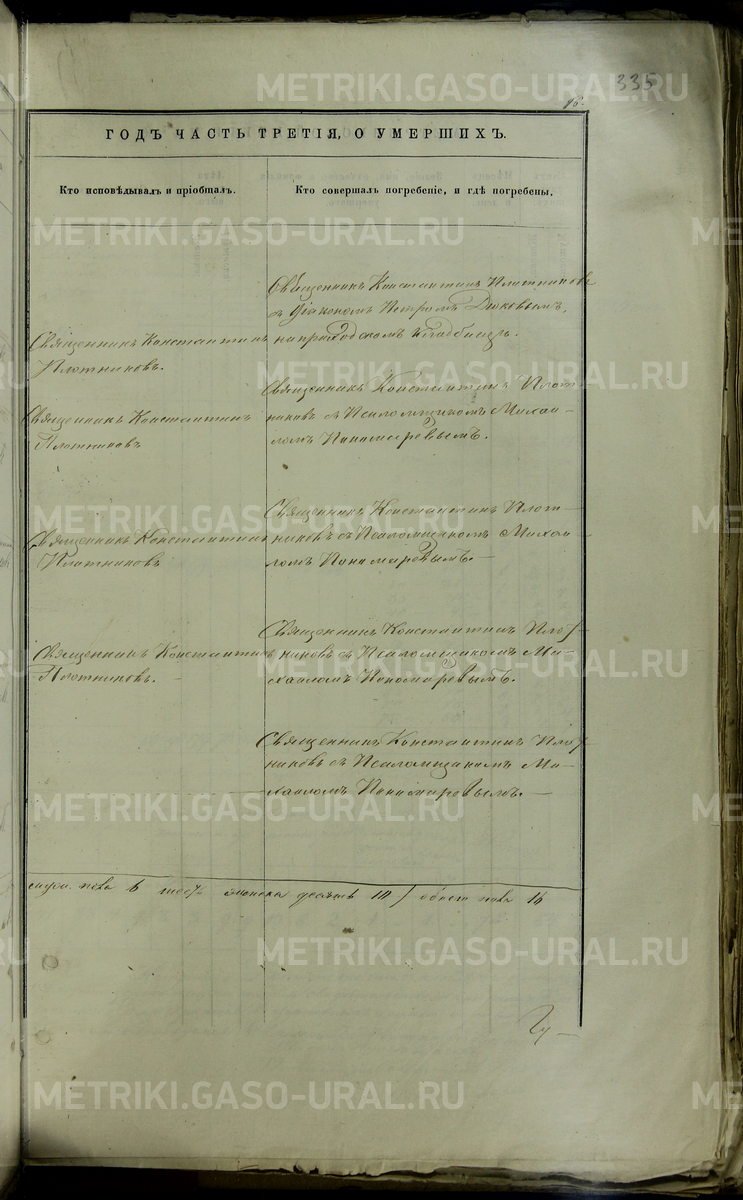 335
96.
ГОДЪ ЧАСТЬ ТРЕТІЯ, О УМЕРШИХЪ.
Кто исповѣдывалъ и пріобщалъ.
Кто совершалъ погребеніе, и гдѣ погребены.
Священникъ Константинъ Плотниковъ
съ Діякономъ Петромъ Дюковымъ,
на приходскомъ кладбищѣ.
Священникъ Константинъ
Плотниковъ.
Священникъ Константинъ Плот-
никовъ съ Псаломщикомъ Михаи-
ломъ Пономаревымъ.
Священникъ Константинъ
Плотниковъ
Священникъ Константинъ Плот-
никовъ съ Псаломщикомъ Михаи-
ломъ Пономаревымъ.—
Священникъ Константинъ
Плотниковъ
Священникъ Константинъ Плот-
никовъ съ Псаломщикомъ Ми-
хаиломъ Пономаревымъ.
Священникъ Константинъ
Плотниковъ.
Священникъ Константинъ Плот-
никовъ съ Псаломщикомъ Ми-
хаиломъ Пономаревымъ.—
пола 6 женска десять 10 / обоег пола 16
METRIKI.GASO-URAL.RU